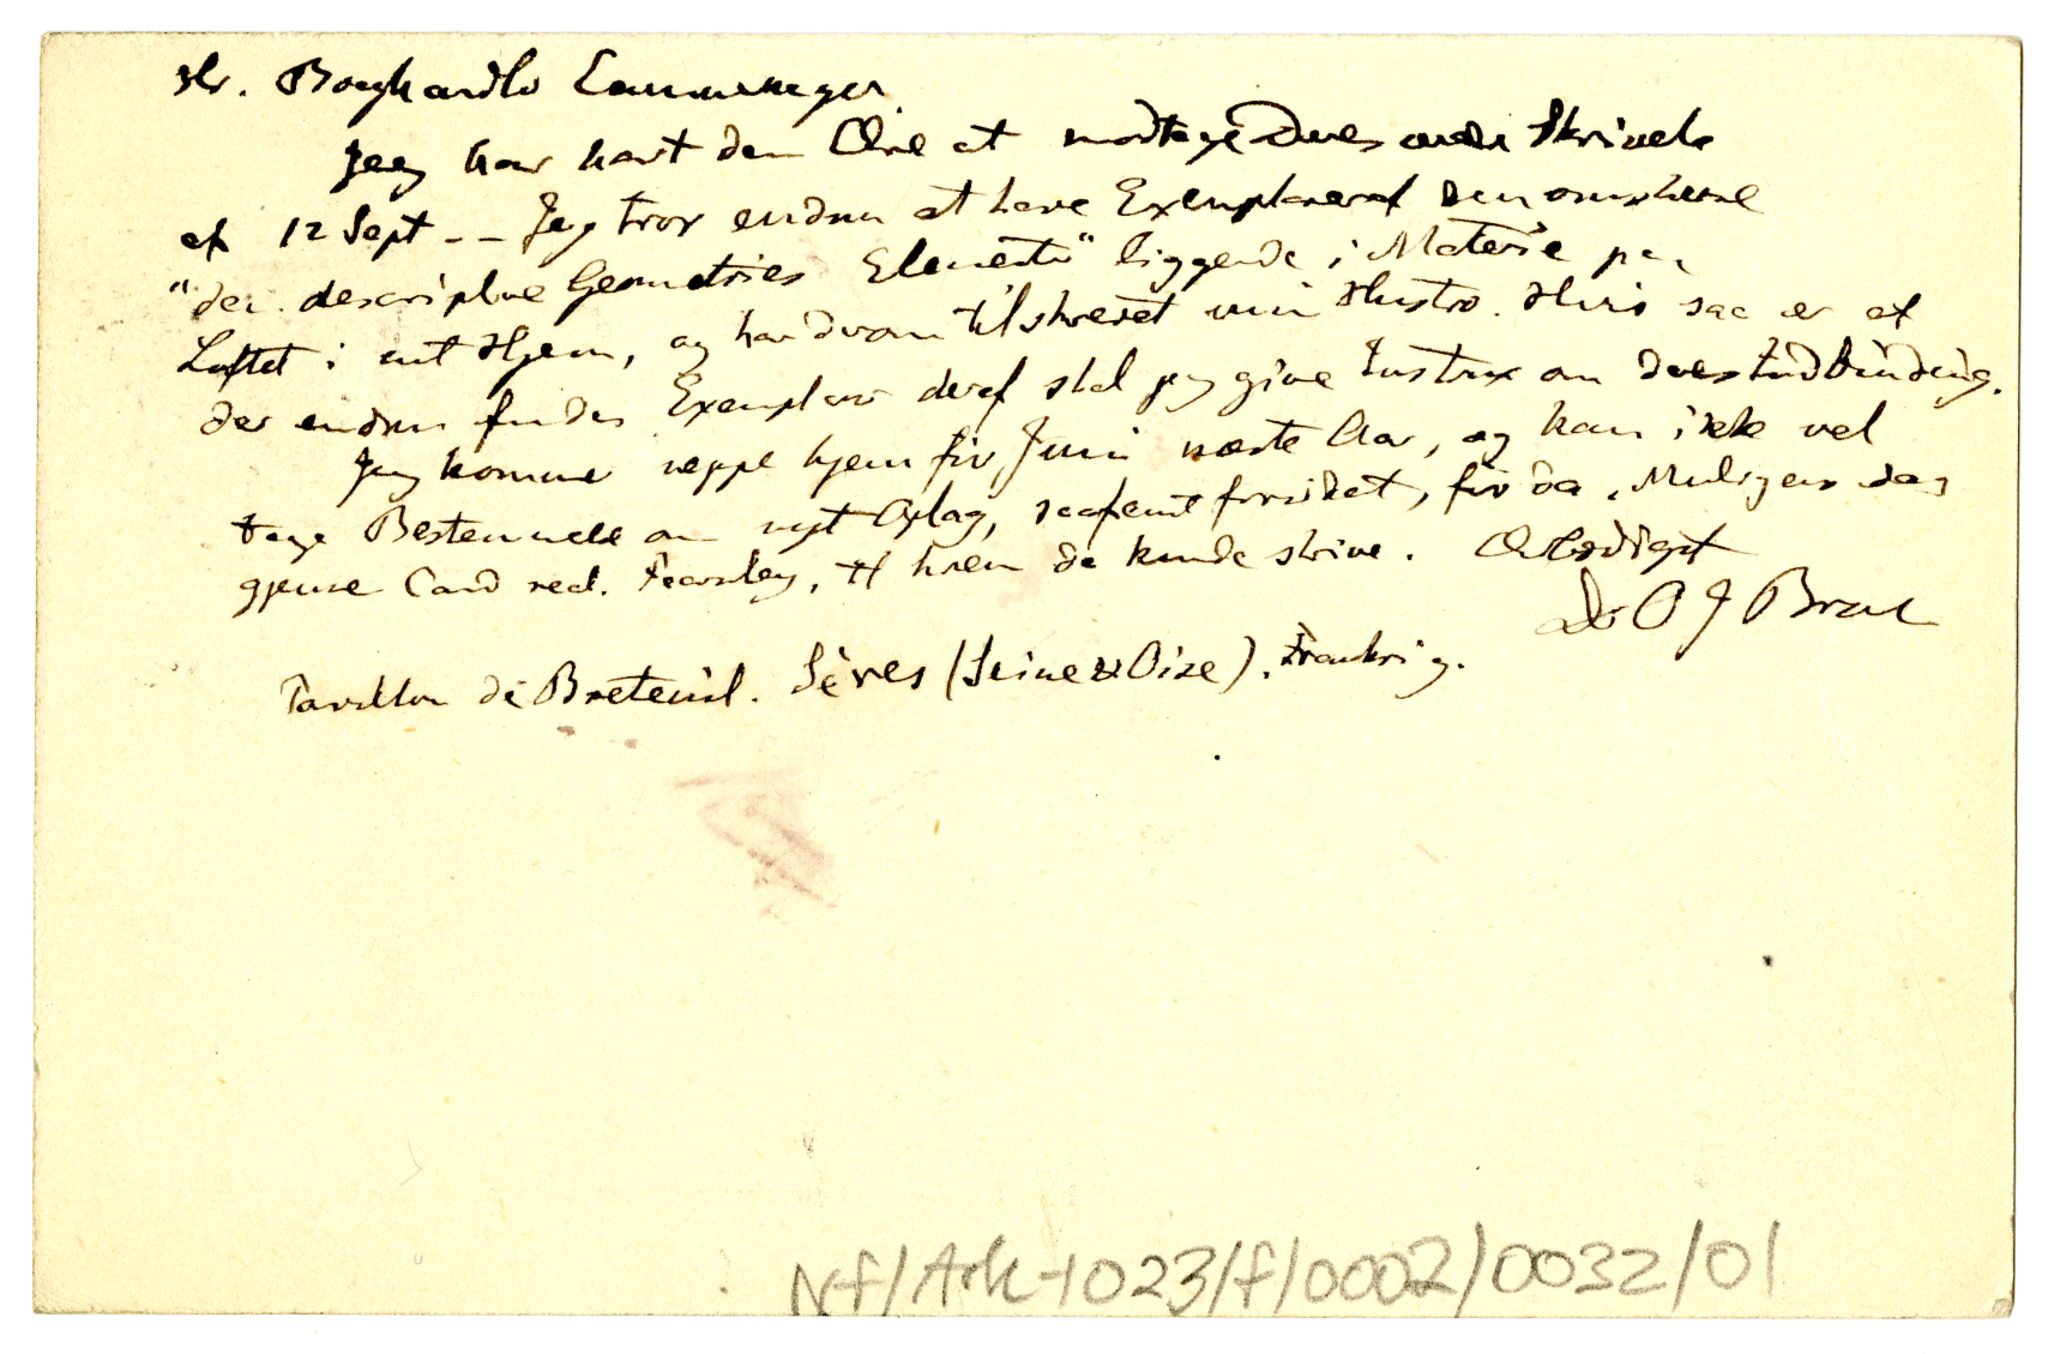 Hr. Boghandler Cammermeyer.
Jeg har havt den Ære at modtage Deres ærede Skrivelse
af 12 Sept -- Jeg tror endnu at have Exemplarer af den omskrevne
"den descriptive Geometries Elementer" liggende i Materie paa
Loftet i mit Hjem, og har derom tilskrevet min Hustro. Hvis saa er at
der endnu findes Exemplar deraf skal jeg give Instrux om deres Indbinding.
Jeg kommer neppe hjem før Juni næste Aar, og kan ikke vel
tage Bestemmelse om nyt Oplag, saafremt fornødent, før da. Muligens dog
gjennem Cand real. Fearnley, til hvem De kunde skrive. Ærbødigst
Dr O J Broch
Pavillon de Breteuil. Sèvres (Seine & Oise). Frankrig.
NF/Ark-1023/f/0002/0032/01